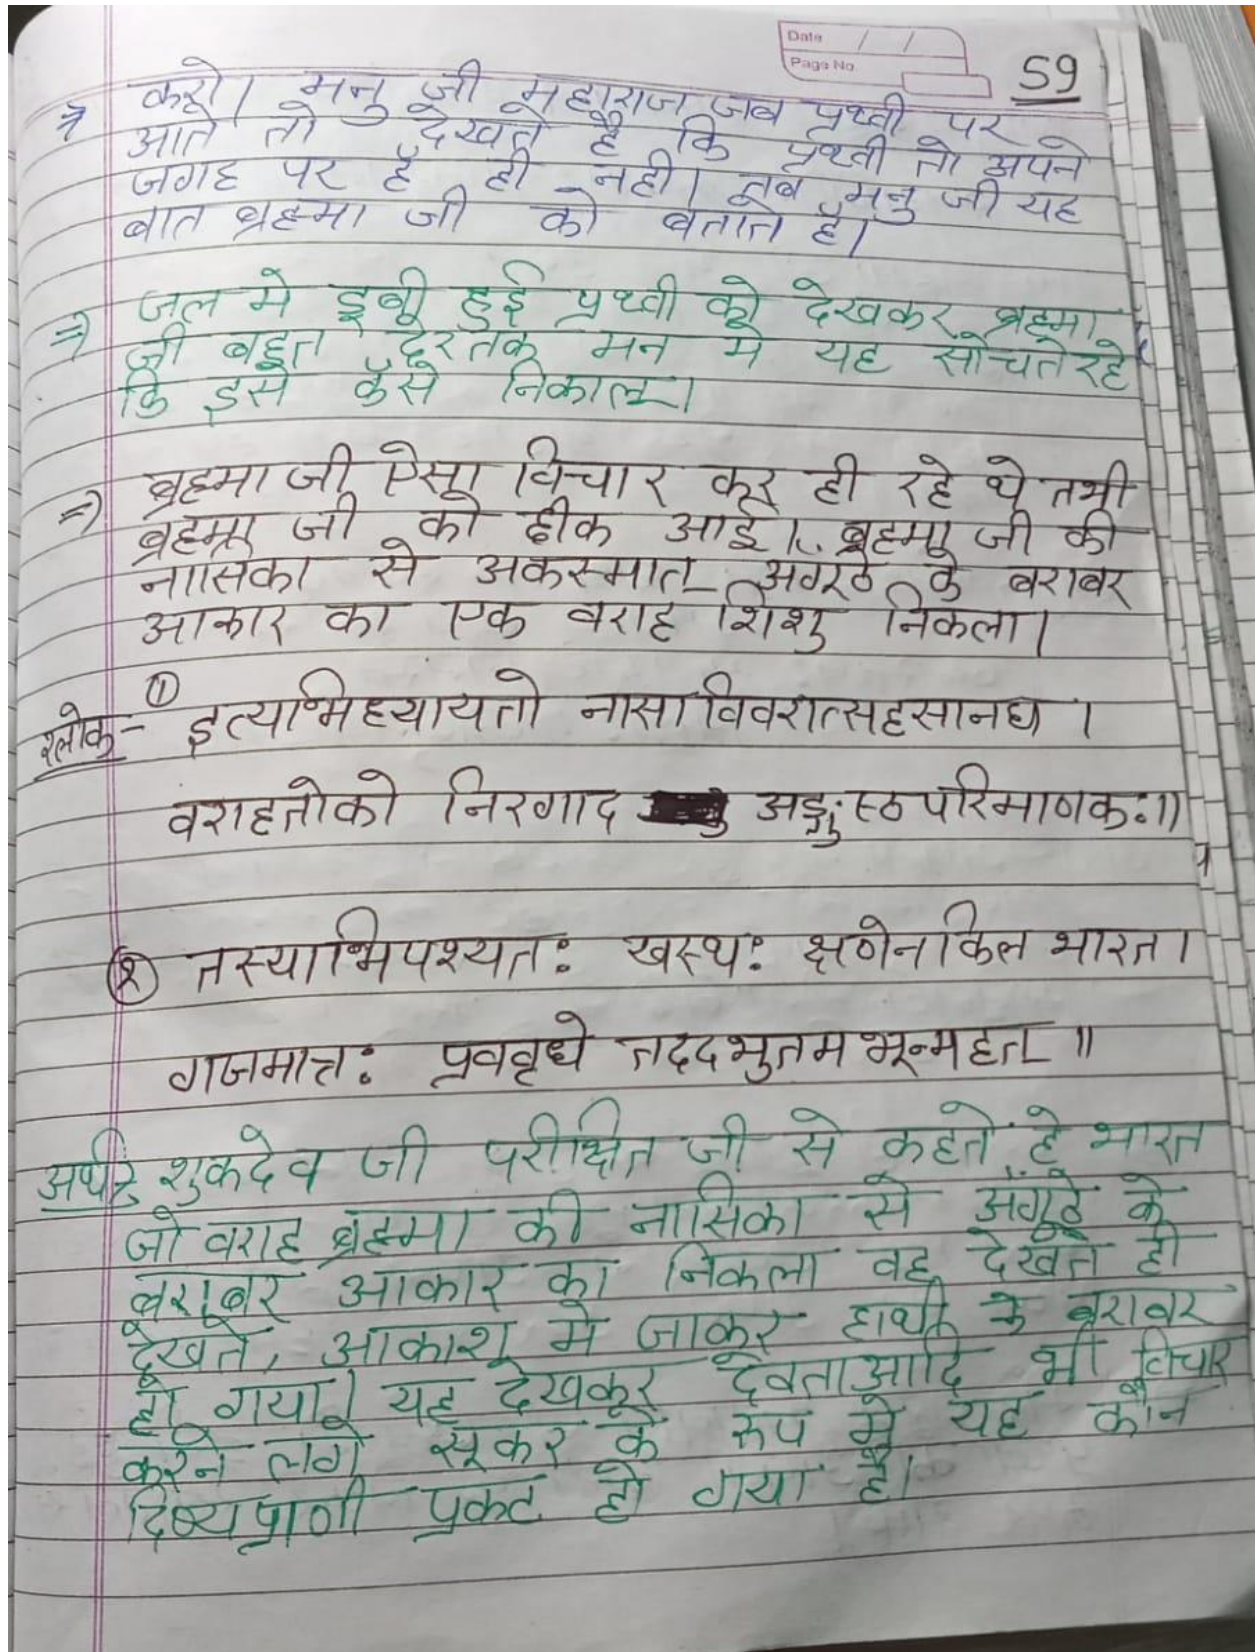 Date / /
Page No.
59
⇒ करो। मनु जी महाराज जब पृथ्वी पर
आते तो देखते है कि पृथ्वी तो अपने
जगह पर है ही नही। तब मनु जी यह
बात ब्रह्मा जी को बताते है।
⇒ जल मे डूबी हुई पृथ्वी को देखकर ब्रह्मा
जी बहुत देर तक मन मे यह सोचते रहे
कि इसे कैसे निकालू।
⇒ ब्रह्मा जी ऐसा विचार कर ही रहे थे तभी
ब्रह्मा जी को छीक आई। ब्रह्मा जी की
नासिका से अकस्मात् अंगूठे के बराबर
आकार का एक वराह शिशु निकला।
श्लोक - ① इत्यभिध्यायतो नासाविवरात्सहसानघ।
वराहतोको निरगाद अङ्गुष्ठपरिमाणकः॥
② तस्याभिपश्यतः खस्थः क्षणेन किल भारत।
गजमात्रः प्रववृधे तददभुतमभून्महत्॥
अर्थ- शुकदेव जी परीक्षित जी से कहते हे भारत
जो वराह ब्रह्मा की नासिका से अंगूठे के
बराबर आकार का निकला वह देखते ही
देखते, आकाश मे जाकर हाथी के बराबर
हो गया। यह देखकर देवता आदि भी विचार
करने लगे सूकर के रूप मे यह कौन
दिव्य प्राणी प्रकट हो गया है।